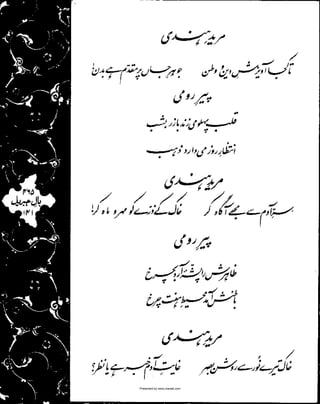 مرید ہندی
تا کجا آویزش دین و وطن جوہر جاں پر مقدم ہے بدن!
پیر رومی
قلب پہلو می زند با زر بشب
انتظار روز می دارد ذہب
مرید ہندی
سر آدم سے مجھے آگاہ کر خاک کے ذرے کو مہر و ماہ کر!
پیر رومی
ظاہرش را پشۂ آرد بچرخ
باطنش آمد محیط ہفت چرخ
مرید ہندی
خاک تیرے نور سے روشن بصر غایت آدم خبر ہے یا نظر؟
۴۶۵
بال جبریل
۱۴۱